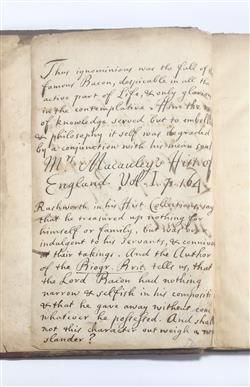 Thus ignominious was the fall of the
famous Bacon, despicable in all the
active part of Life, & only glorious
in the contemplative. Him the
of knowledge served but to embellish
& philosophy it self was degraded
by a conjunction with his mean soul
Mrs Macauley's Hist. of
England. Vol. I. p. 164
Rushworth in his Hist Collections, says
that he treasured up nothing for
himself or family, but was over
indulgent to his Servants, & connived
at their takings. And the Author
of the Biogr. Brit. tells us, that
the Lord Bacon had nothing
narrow & selfish in his composition
& that he gave away without
whatever he possessed. And shall
not this character out weigh a
slander?